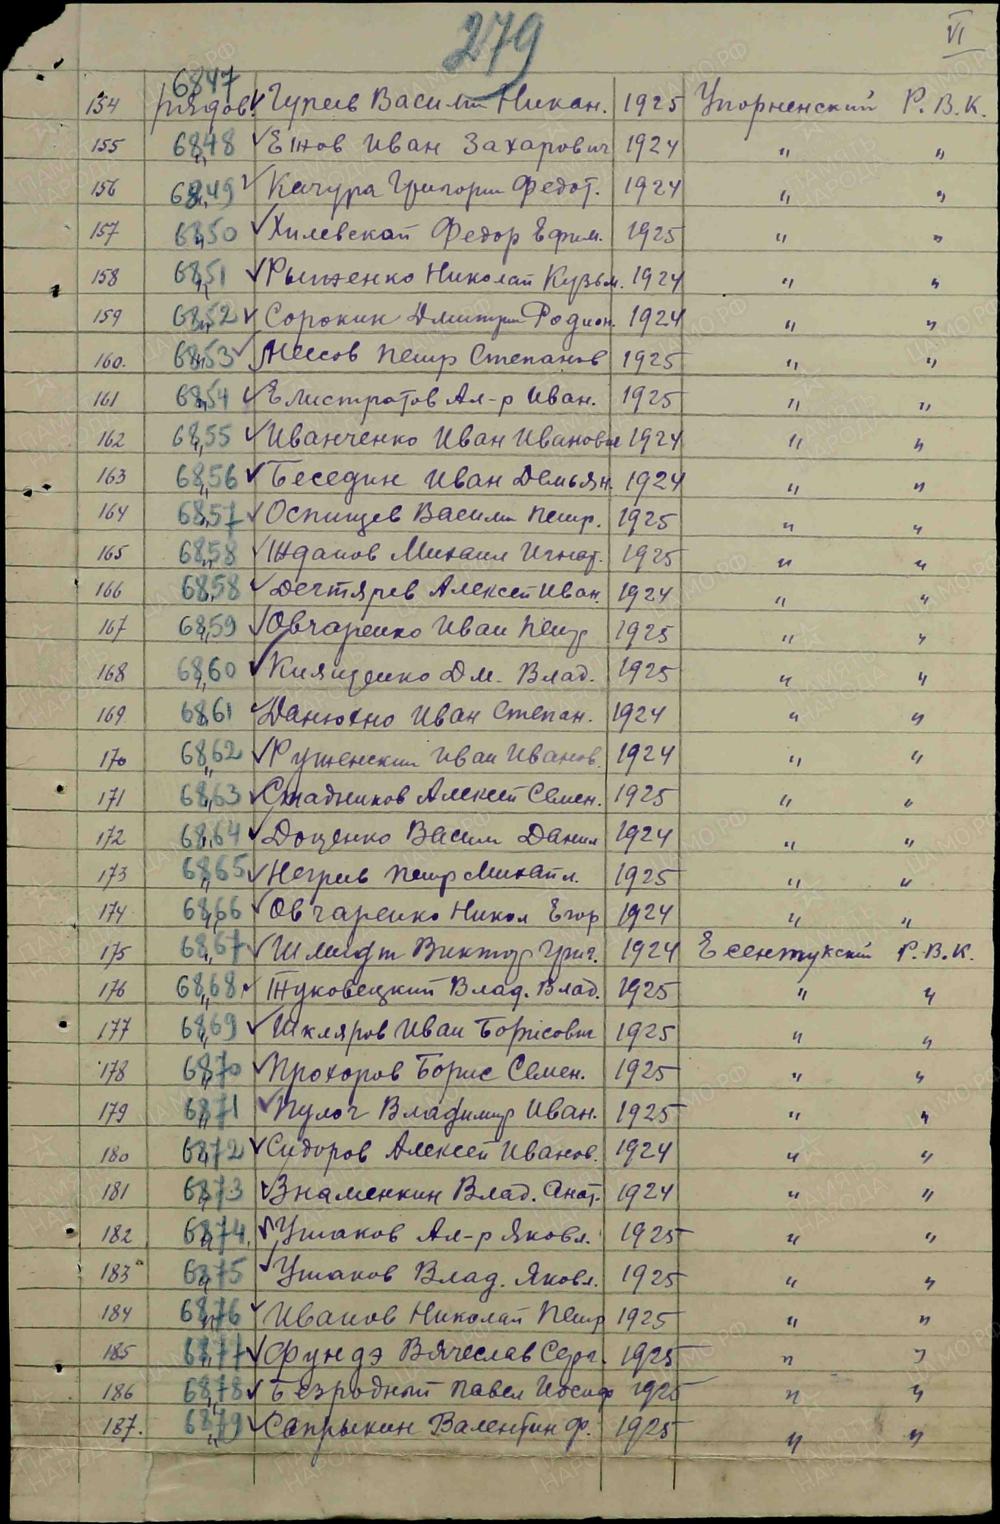 279
VI
154 6847 рядов. Гуреев Василий Никан. 1925 Упорненский Р.В.К.
155 6848 " Ежов Иван Захарович 1924 " "
156 6849 " Качура Григорий Федот. 1924 " "
157 6850 " Хилевской Федор Ефим. 1925 " "
158 6851 " Рыженко Николай Кузьм. 1924 " "
159 6852 " Сорокин Дмитрий Родион. 1924 " "
160. 6853 " Петр Степанов 1925 " "
161 6854 " Елистратов Ал-р Иван. 1925 " "
162 6855 " Иванченко Иван Иванович 1924 " "
163 6856 " Беседин Иван Демьян. 1924 " "
164 6857 " Оспищев Василий Петр. 1925 " "
165 6858 " Жданов Михаил Игнат. 1925 " "
166 6858 " Дегтярев Алексей Иван. 1924 " "
167 6859 " Овчаренко Иван Петр 1925 " "
168 6860 " Кнященко Дм. Влад. 1925 " "
169 6861 Данюхно Иван Степан. 1924 " "
170 6862 " Руженский Иван Иванов. 1924 " "
171 6863 " Стадников Алексей Семен. 1925 " "
172 6864 " Доценко Василий Данил 1924 " "
173 6865 " Негрив Петр Михайл. 1925 " "
174 6866 " Овчаренко Никол Егор 1924 " "
175 6867 " Шмидт Виктор Григ. 1924 Есентукский Р.В.К.
176 6868 " Жуковецкий Влад. Влад. 1925 " "
177 6869 " Шкляров Иван Борисович 1925 " "
178 6870 " Прохоров Борис Семен. 1925 " "
179 6871 " Пулог Владимир Иван. 1925 " "
180 6872 " Сидоров Алексей Иванов. 1924 " "
181 6873 " Знаменкин Влад. Анат. 1924 " "
182 6874 " Ушаков Ал-р Яковл. 1925 " "
183 6875 " Ушаков Влад. Яковл. 1925 " "
184 6876 " Иванов Николай Петр 1925 " "
185 6877 " Фундэ Вячеслав Серг. 1925 " "
186 6878 " Безродный Павел Иосиф 1925 " "
187. 6879 " Сапрыкин Валентин Ф. 1925 " "